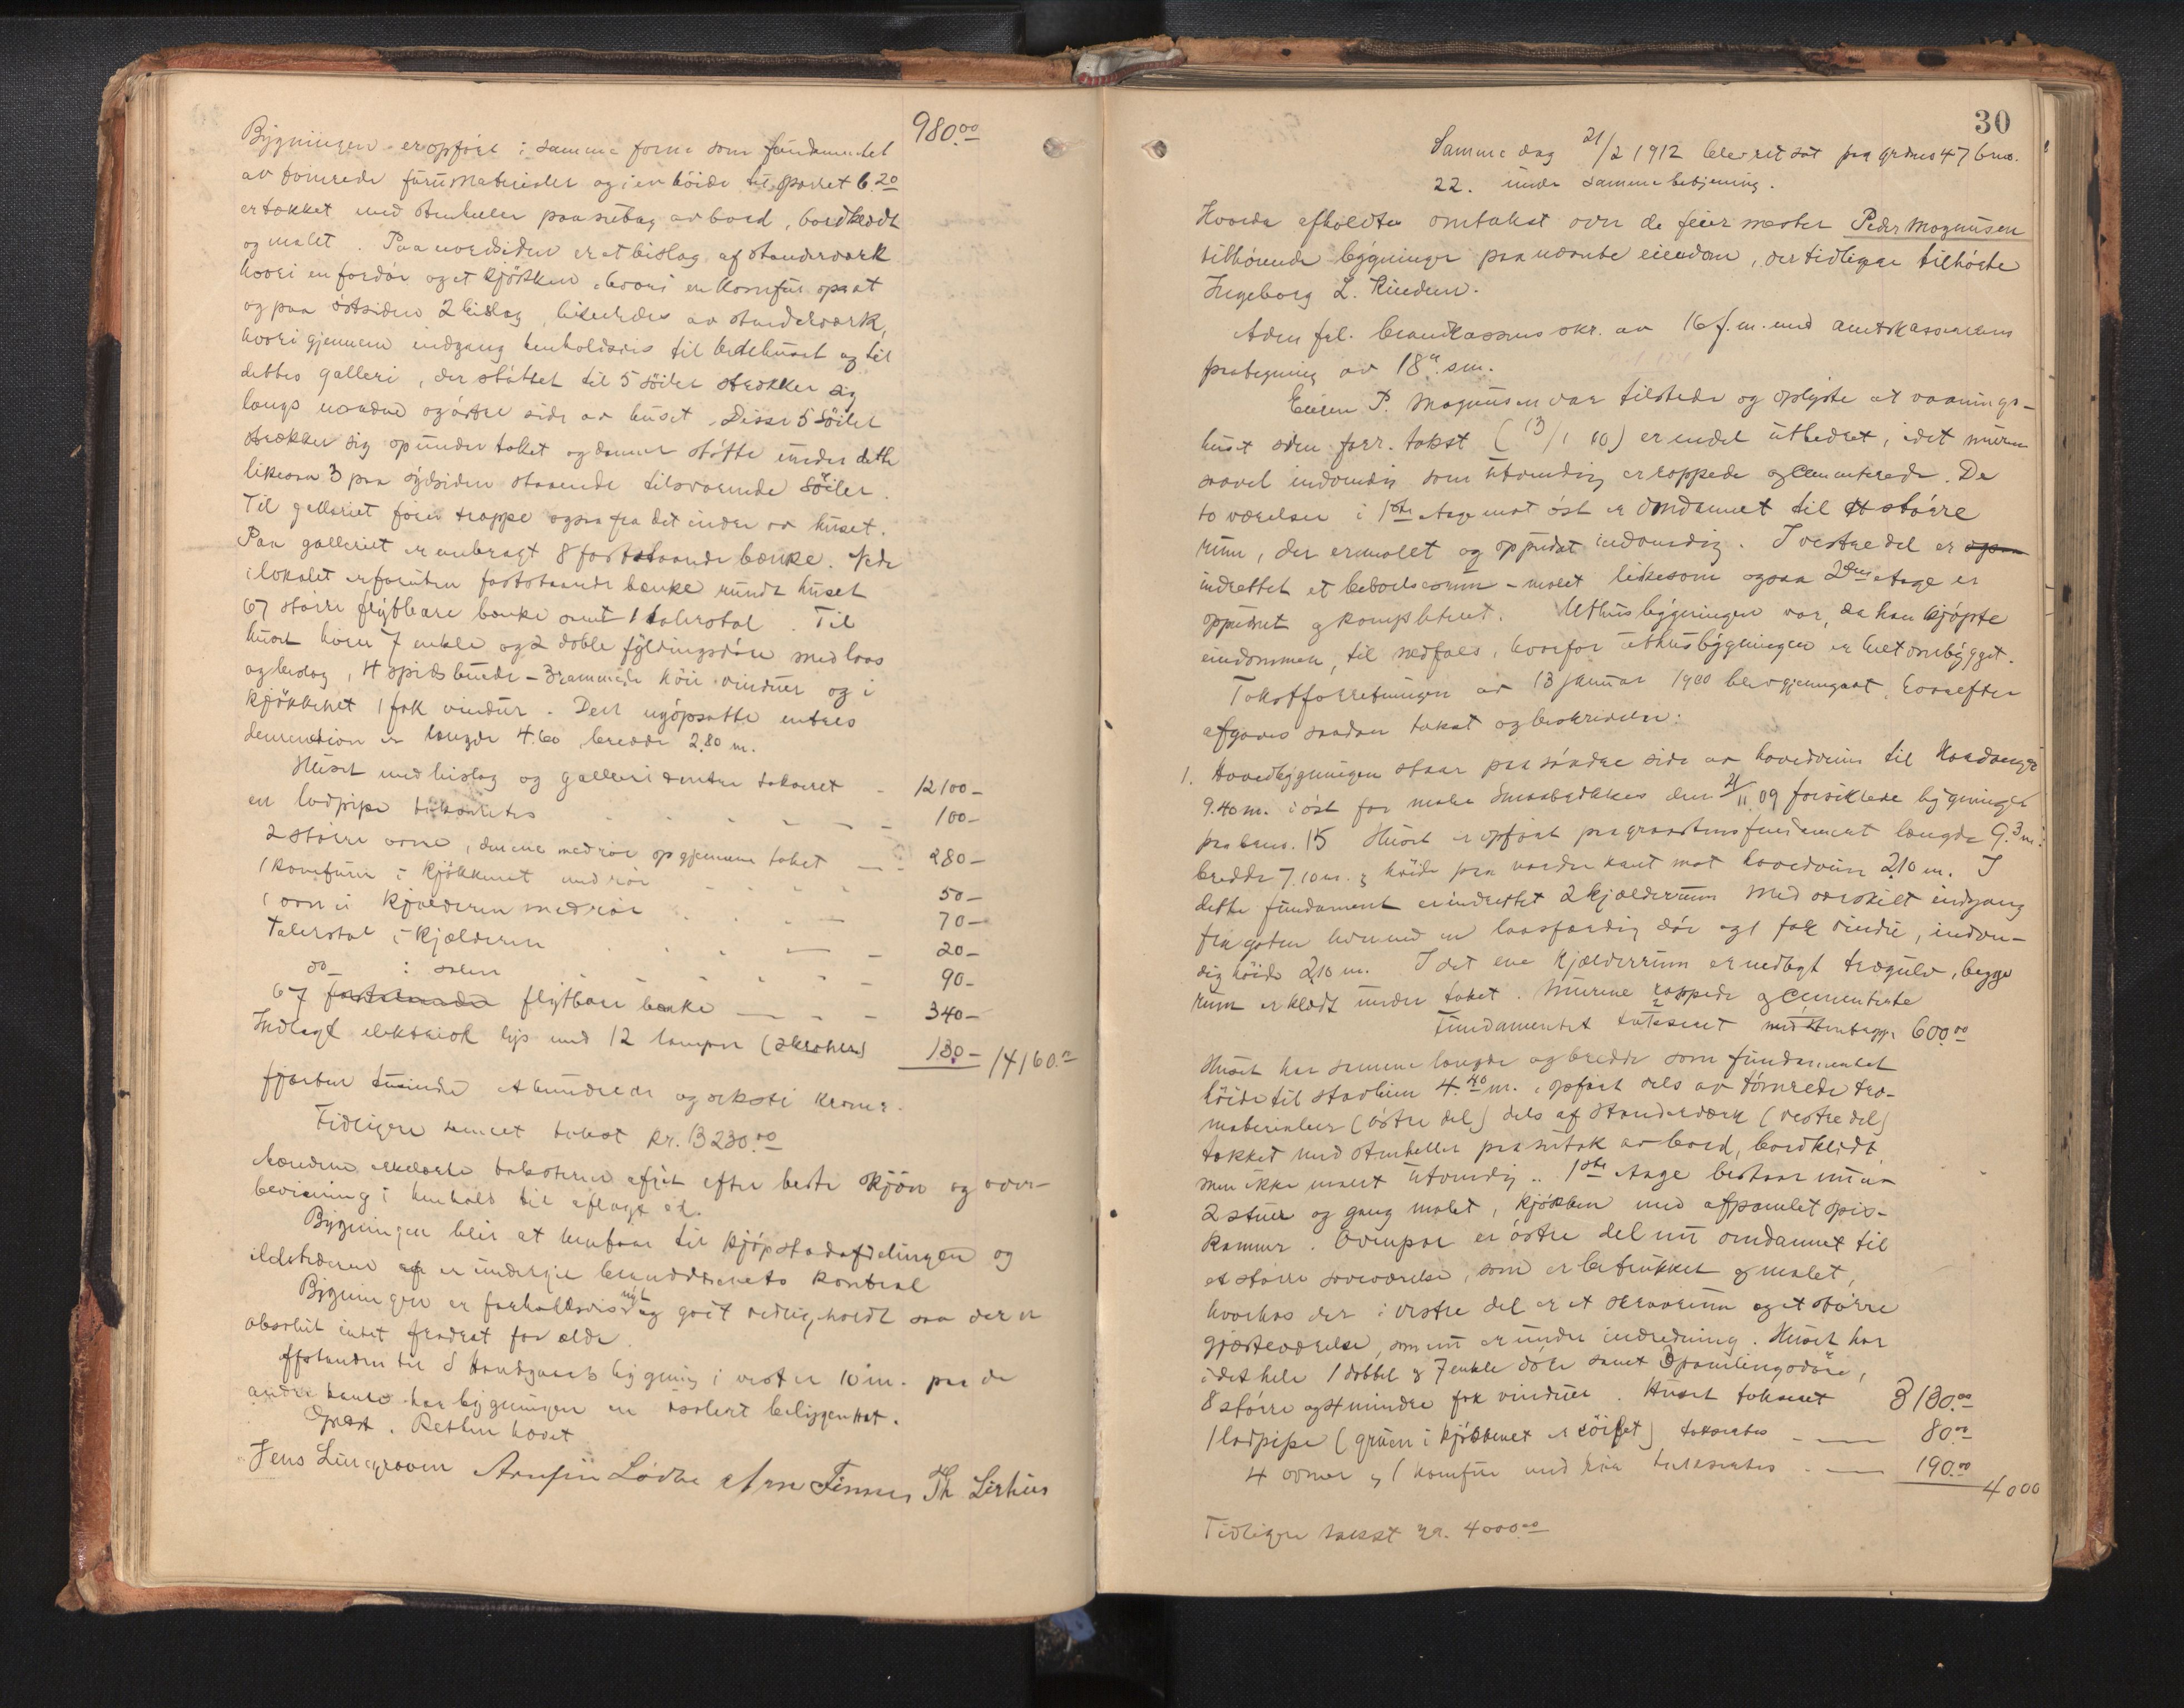 980.00
Bygningen er opført i samme form som fundamentet
av tømrede furumaterialer og i en høide til sparret 6.20
er tækket med stenheller paa sutag av bord, bordklædt
og malet. Paa nordsiden er et bislag af standerværk
hvori en fordør og et kjøkken, hvori en komfur opsat
og paa østsiden 2 bislag, likeledes av standerværk,
hvori gjennem indgang henholdsvis til bedehuset og til
dettes galleri, der støttet til 5 søiler strækker sig
langs nordre og østre side av huset. Disse 5 søiler
strækker sig op under taket og danner støtte under dette
likesaa 3 paa sydsiden staaende tilsvarende søiler.
Til galleriet fører trappe ogsaa fra det indre av huset.
Paa galleriet er anbragt 8 faststaaende bænke. Nede
i lokalet er foruten faststaaende bænke rundt huset
67 større flytbare bænke samt 1 talerstol. Til
huset hører 7 enkle og 2 doble fyldingsdøre med laas
og beslag, 4 spidsbuede - 3rammede høie vinduer og i
kjøkkenet 1 fak vindur. Den nyopsatte entres
demension er længde 4.60 bredde 2.80 m.
Huset med bislag og galleri dentre takseret - 12100 -
en lodpipe taksertes - 100 -
2 større ovne, den ene med rør op gjennem taket - 280 -
1 komfur i kjøkkenet med rør - 50 -
1 ovn i kjælderen med rør - 70 -
Talerstol i kjælderen - 20 -
do - i salen - 90 -
67 faststaaende flytbare bænke - 340 -
Indlagt elektrisk lys med 12 lamper 130 - 14160.00
fjorten tusinde et hundrede og seksti kroner.
Tidligere samlet takst kr. 13230.00
Mændene erklærte taksten afgit efter beste skjøn og over-
bevisning i henhold til aflagt ed.
Bygningen blir at henføre til kjøpstadafdelingen og
ildstederne er undergit branddirekts kontrol
Bygningen er forholdsvis nyt og godt vedligeholdt saa der er
absolut intet fradrat for ælde.
Afstanden til S Handgaards bygning i vest er 10 m. paa de
andre kanter har bygningen en isolert beliggenhet.
Oplæst. Retten hævet
Jens Lindgroven Arnfin Lødve Arne Finnes Th Lirhus
30
Samme dag 21/2 1912 blev ret sat paa grdns 47 brno.
22. under samme betjening.
Hvorda afholdtes omtakst over de feier mester Peder Magnusen
tilhørende bygninger paa nævnte eiendom, der tidligere tilhørte
Ingeborg L. Rinden.
Adm frl. brandkassens skr. av 16 f.m. med amtskassererens
paategning av 18de sm.
Eieren P. Magnusen var tilstede og oplyste at vaanings-
huset siden forr. takst (13/1 00) er endel utbedret, idet muren
saavel indvendig som utvendig er rappede og cementerede. De
to værelser i 1ste etage mot øst er omdannet til et større
rum, der er malet og oppudset indvendig. I vestre del er ogsaa
indrettet et beboelsesrum - malet likesom ogsaa 2den etage er
oppudset og komplettert. Uthusbygningen var, da han kjøpte
eiendommen, til nedfals, hvorfor uthusbygningen er helt ombygget.
Takstforretningen av 13 januar 1900 blev gjennemgaat, hvorefter
afgaves saadan takst og beskrivelse:
1. Hovedbygningen staar paa søndre side av hovedveien til Hardanger
9.40 m. i øst for male Smaabækkes den 21/11 09 forsikrede bygninger
paa brno. 15 Huset er opført paa graastensfundament længde 9.3 m.
bredde 7.10 m. og høide fra nordre kant mot hovedveien 2.10 m. I
dette fundament er indrettet 2 kjælderrum med særskilt indgang
fra gaten hvormed en laasfærdig dør og 1 fak vindu, indven-
dig høide 2.10 m. I det ene kjælderrum er nedlagt trægulv, begge
rum er klædt under taket. Murene rappede og cementerte
Fundamentet takseret med stentrappe 600.00
Huset har samme længde og bredde som fundamentet
høide til stavlein 4.40 m. opført dels av tømrede træ-
materialer (østre del) dels af standerværk (vestre del)
tækket med stenheller paa sutak av bord, bordklædt,
men ikke malt utvendig. 1ste etage bestaar nu av
2 stuer og gang malet, kjøkken med afpanelet spis-
kammer. Ovenpaa er østre del nu omdannet til
et større soveværelse, som er betrukket og malet,
hvorhos der i vestre del er et soverum og et større
gjæsteværelse, som nu er under indredning. Huset har
i det hele 1 dobbel og 7 enkle døre samt 3 panelingsdøre,
8 større og 4 mindre fak vinduer. Huset takseret 3130.00
1 lodpipe (gruen i kjøkkenet er sløifet) taksertes - 80.00
4 ovner og 1 komfur med rør taksertes - 190.00
4000
Tidligere takst kr. 4000.00